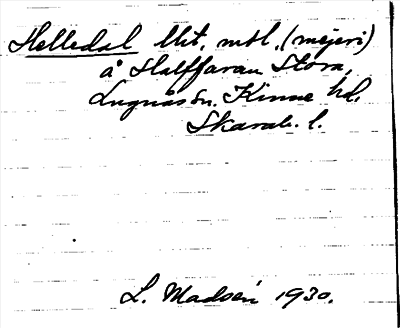 Helledal lht, mtl. (mejeri)
å Halffaran Stora,
Lugnås sn. Kinne hd.
Skarab. l.
L. Madsén 1930.